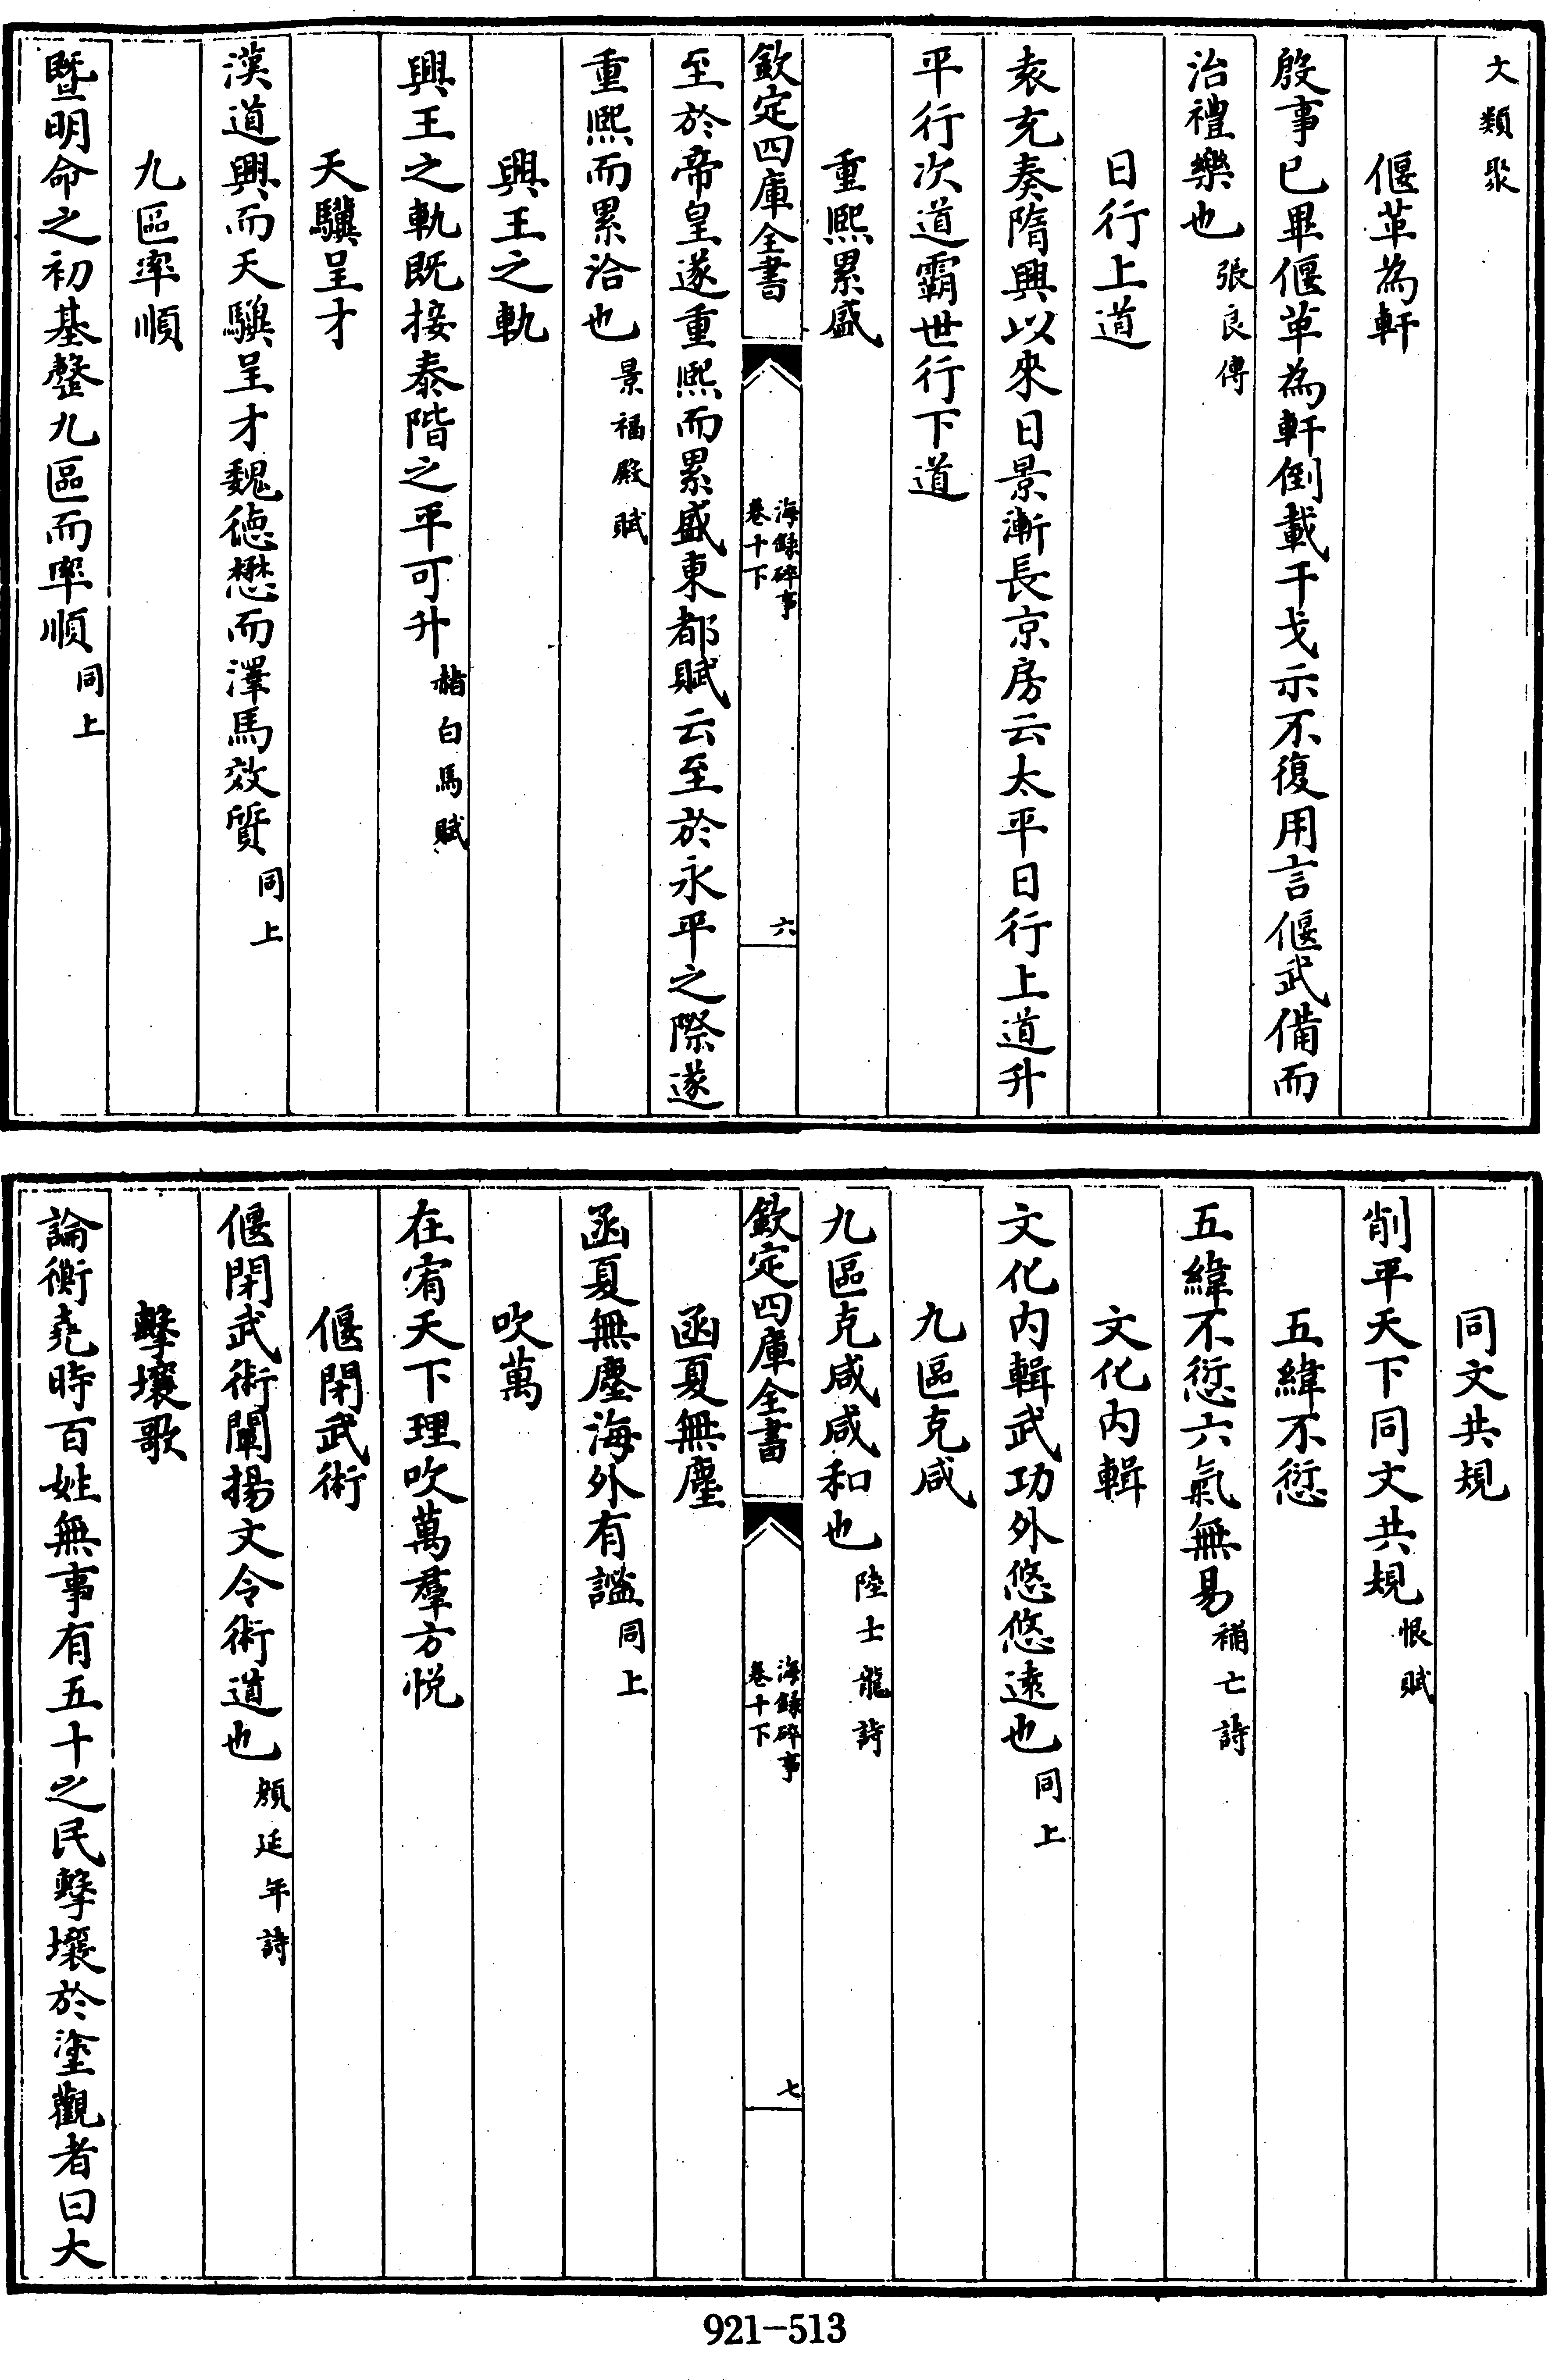 文類聚
偃革為軒
殷事已畢偃革為軒倒載干戈示不復用言偃武備而
治禮樂也張良傳
日行上道
袁充奏隋興以來日景漸長京房云太平日行上道升
平行次道霸世行下道
重熙累盛
欽定四庫全書
海錄碎事
卷十下
六
至於帝皇遂重熙而累盛東都賦云至於永平之際遂
重熙而累洽也景福殿賦
興王之軌
興王之軌既接泰階之平可升赭白馬賦
天驥呈才
漢道興而天驥呈才魏德懋而澤馬效質同上
九區率順
暨明命之初基罄九區而率順同上
同文共規
削平天下同文共規恨賦
五緯不愆
五緯不愆六氣無易補亡詩
文化内輯
文化内輯武功外悠悠遠也同上
九區克咸
九區克咸咸和也陸士龍詩
欽定四庫全書
海錄碎事
卷十下
七
函夏無塵
函夏無塵海外有謐同上
吹萬
在宥天下理吹萬羣方悦
偃閉武術
偃閉武術闡揚文令術道也顔延年詩
擊壤歌
論衡堯時百姓無事有五十之民擊壤於塗觀者曰大
921-513